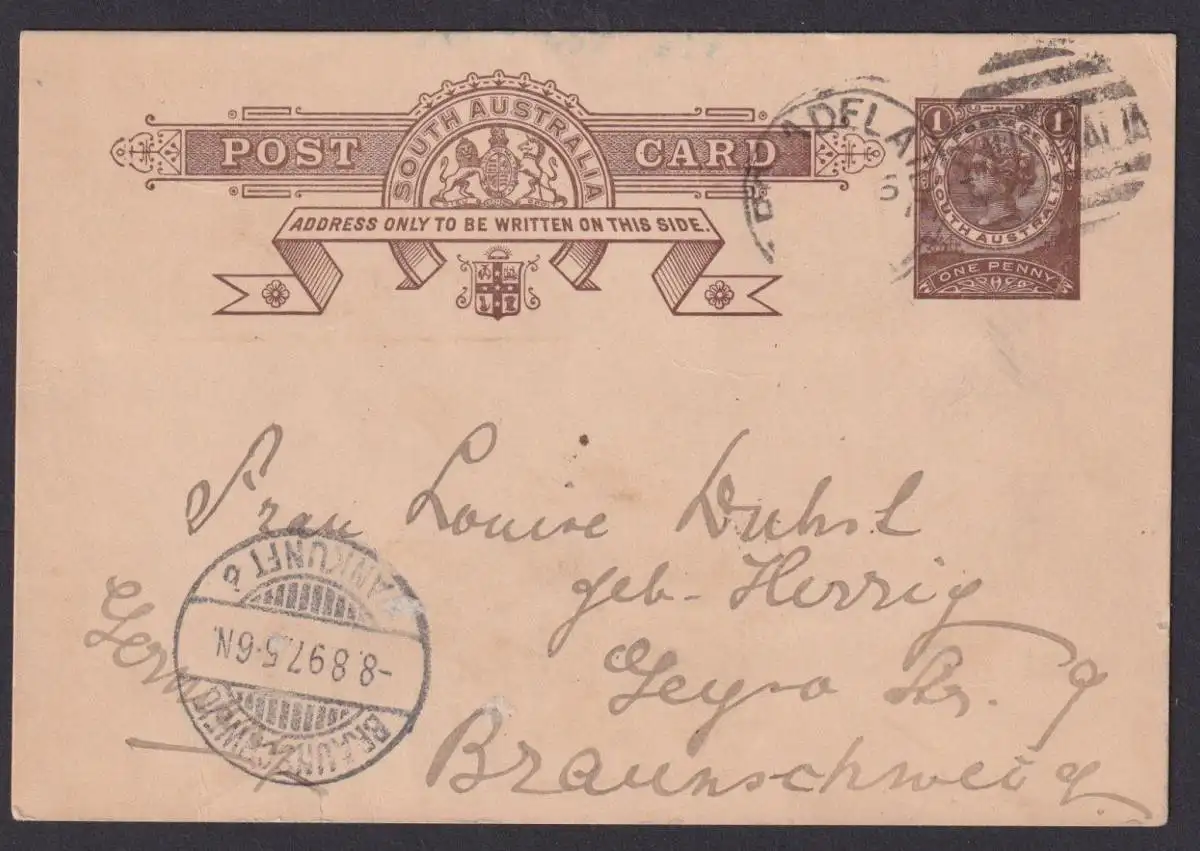 SOUTH AUSTRALIA
POST CARD
ADDRESS ONLY TO BE WRITTEN ON THIS SIDE.
ADELA
1 1
SOUTH AUSTRALIA
ONE PENNY
Frau Louise
geb. Herrig
Str.
Braunschweig
Germany
ANKUNFT
-8.8.97.5-6N.
BRAUNSCHWEIG